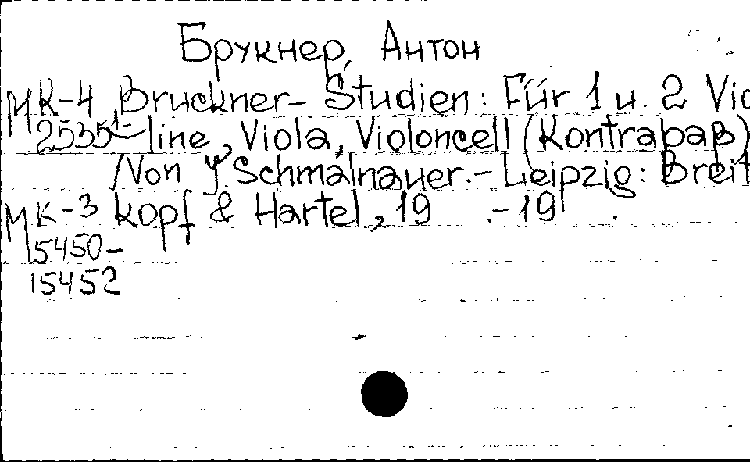 Брукнер, Антон
МК-4 Bruckner-Studien: Für 1 u. 2 Vio
2535- line, Viola, Violoncell (Kontrabaß)
/Von J. Schmalnauer.- Leipzig: Breit
МК-3 kopf & Hartel, 19 .-19 .
15450-
15452